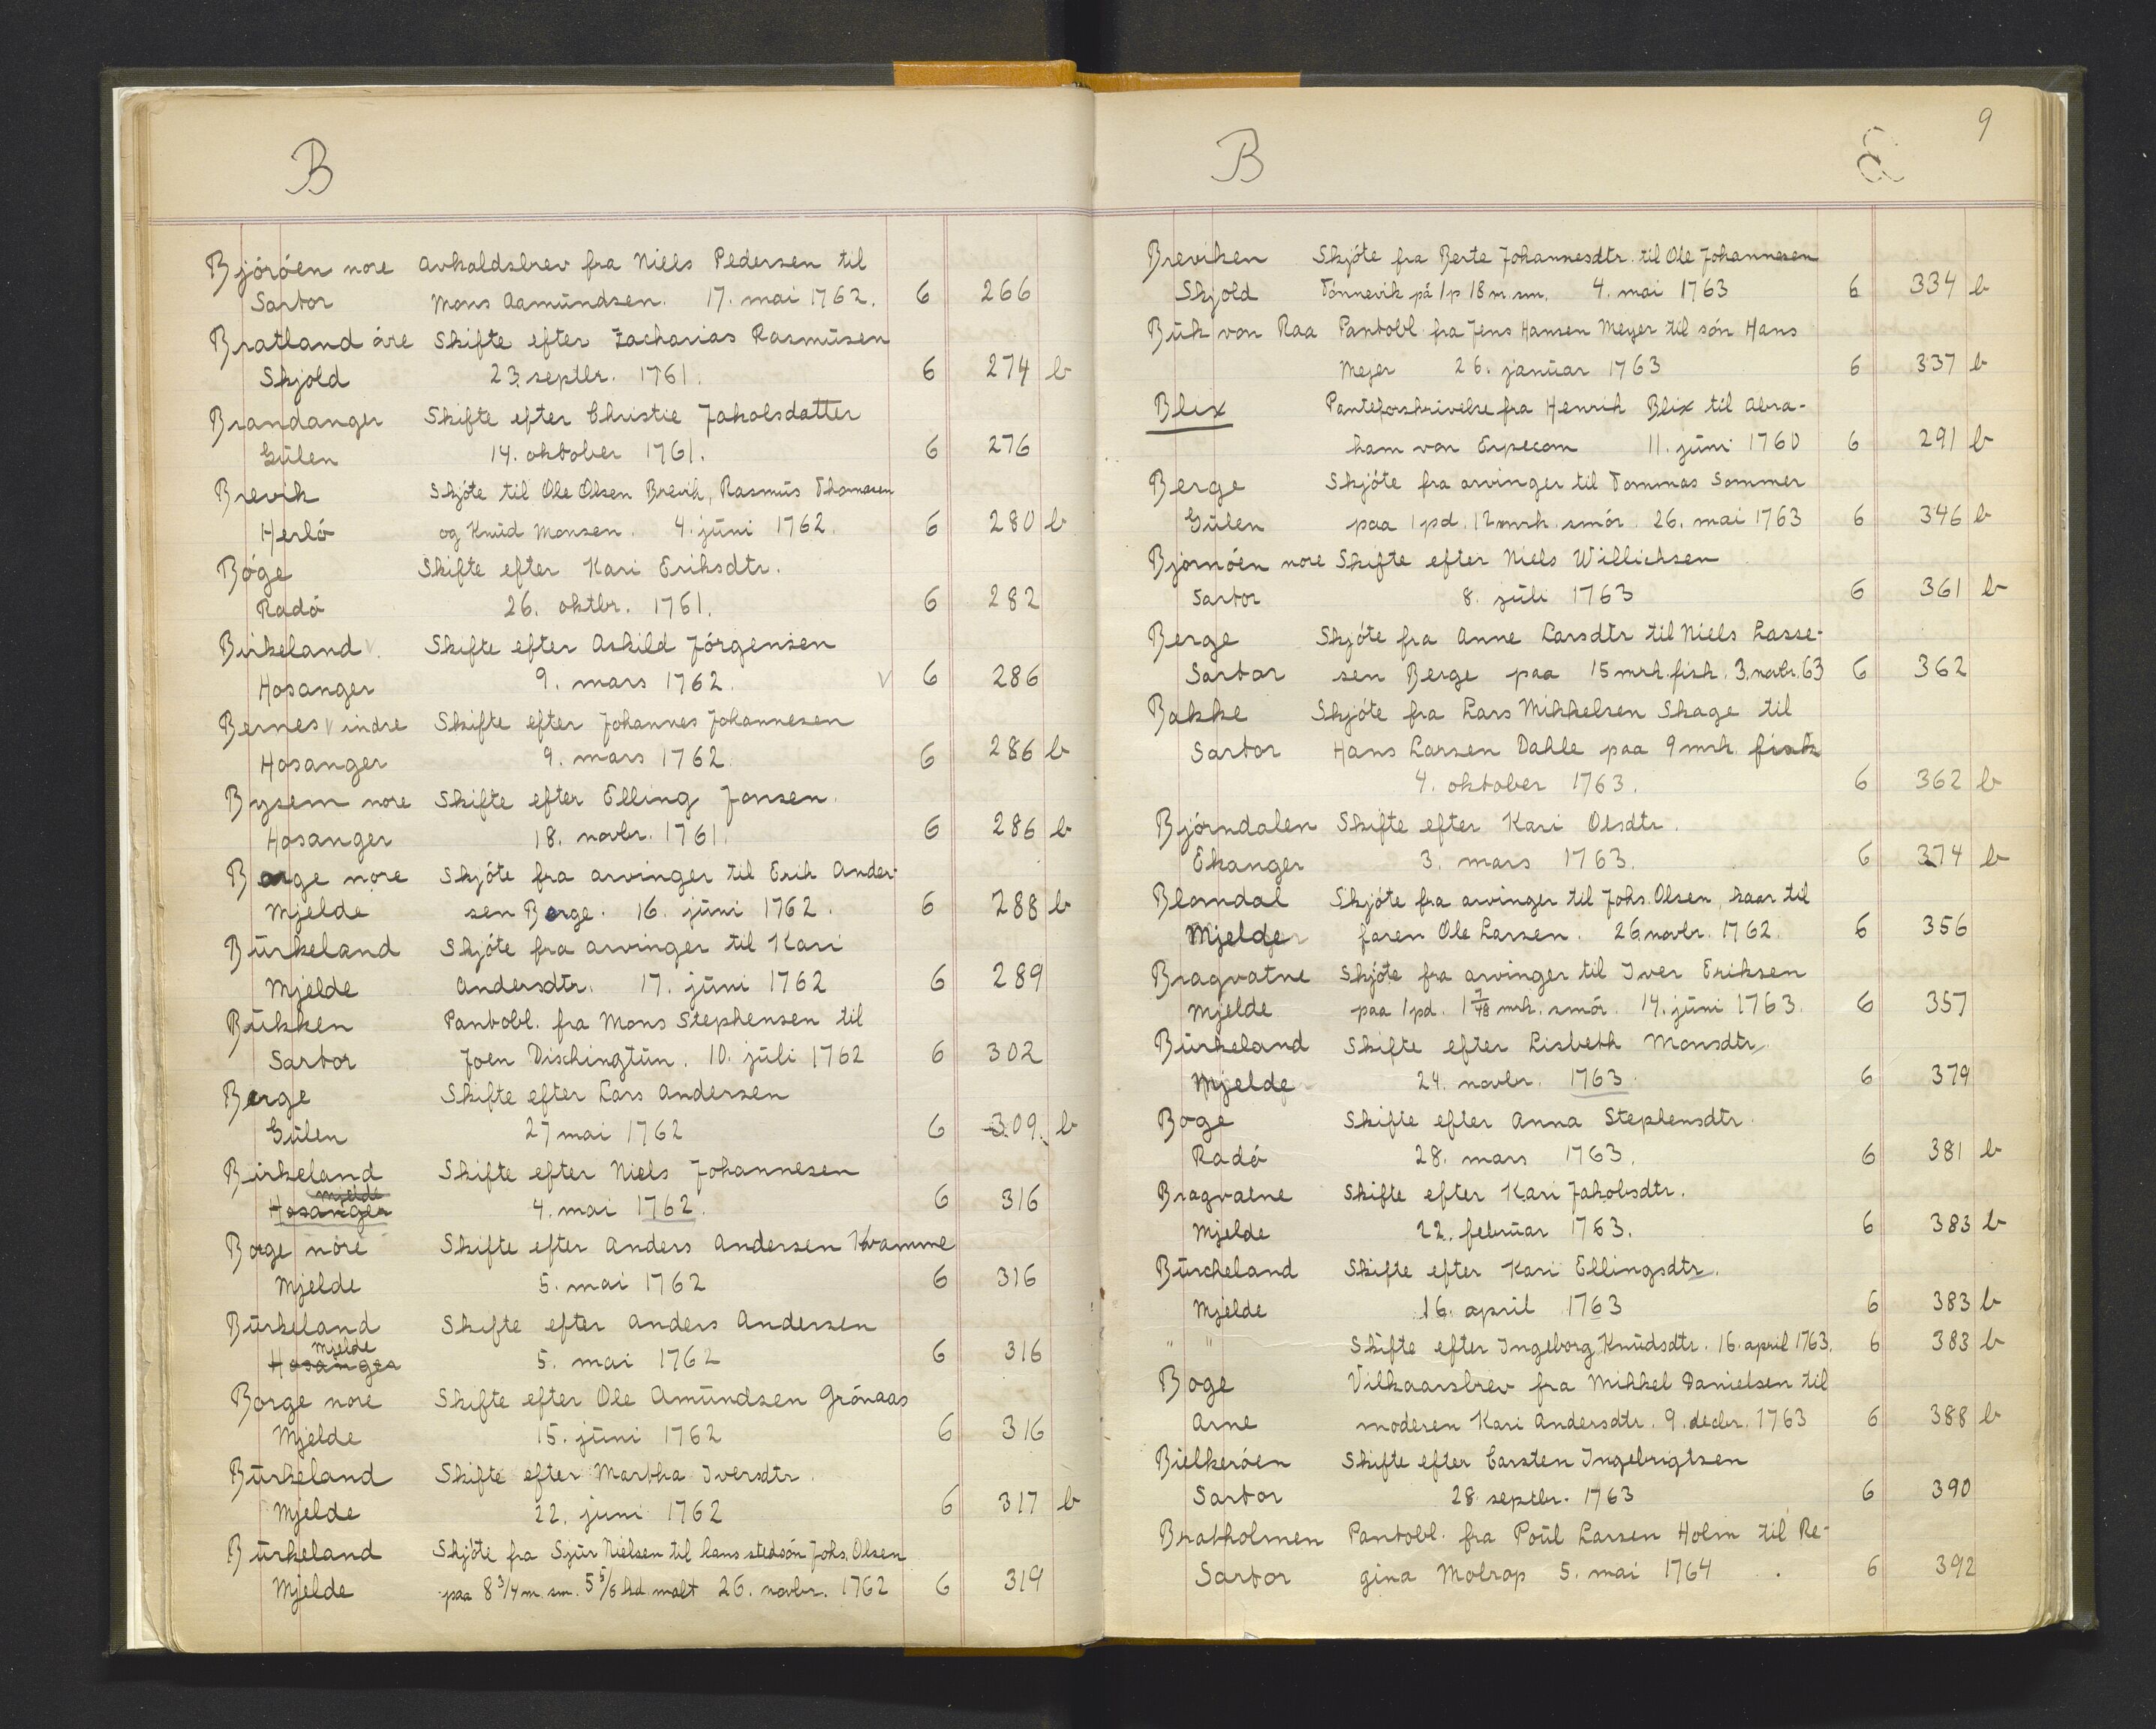 B
Björöen nore Avkaldsbrev fra Niels Pedersen til
Sartor Mons Aamundsen. 17. mai 1762. 6 266
Bratland övre Skifte efter Zacharias Rasmusen
Skjold 23. septbr. 1761. 6 274 b
Brandanger Skifte efter Christie Jakobsdatter
Gulen 14. oktober 1761. 6 276
Brevik Skjöte til Ole Olsen Brevik, Rasmus Thomasen
Herlö og Knud Monsen. 4. juni 1762. 6 280 b
Böge Skifte efter Kari Eriksdtr.
Radö 26. oktbr. 1761. 6 282
Birkeland v. Skifte efter Askild Jörgensen
Hosanger 9. mars 1762. v 6 286
Bernes v indre Skifte efter Johannes Johannesen
Hosanger 9. mars 1762. 6 286 b
Bysem nore Skifte efter Elling Jonsen.
Hosanger 18. novbr. 1761. 6 286 b
Borge nore Skjöte fra arvinger til Erik Ander-
Mjelde sen Borge. 16. juni 1762. 6 288 b
Burkeland Skjöte fra arvinger til Kari
Mjelde Andersdtr. 17. juni 1762 6 289
Bukken Pantobl. fra Mons Stephensen til
Sartor Joen Dischingtun. 10. juli 1762 6 302
Berge Skifte efter Lars Andersen
Gulen 27 mai 1762 6 309. b
Birkeland Skifte efter Niels Johannesen
Mjelde
Hosanger 4. mai 1762. 6 316
Borge nore Skifte efter Anders Andersen Kvamme
Mjelde 5. mai 1762 6 316
Burkeland Skifte efter Anders Andersen
Mjelde
Hosanger 5. mai 1762 6 316
Borge nore Skifte efter Ole Amundsen Grönaas
Mjelde 15. juni 1762 6 316
Burkeland Skifte efter Martha Iversdtr.
Mjelde 22. juni 1762 6 317 b
Burkeland Skjöte fra Sjur Nielsen til hans stedsön Johs. Olsen
Mjelde paa 8 3/4 m. sm. 5 5/6 hd malt 26. novbr. 1762 6 319
B 9
Breviken Skjöte fra Berte Johannesdtr. til Ole Johannesen
Skjold Tönnevik på 1 p 18 m. sm. 4. mai 1763 6 334 b
Buk von Raa Pantobl. fra Jens Hansen Meyer til sön Hans
Mejer 26. januar 1763 6 337 b
Blix Panteforskrivelse fra Henrik Blix til Abra-
ham von Erpecom 11. juni 1760 6 291 b
Berge Skjöte fra arvinger til Tommas Sommer
Gulen paa 1 pd. 12 mrk. smör. 26. mai 1763 6 346 b
Bjornöen nore Skifte efter Niels Willichsen
Sartor 8. juli 1763 6 361 b
Berge Skjöte fra Anne Larsdtr til Niels Lasse-
Sartor sen Berge paa 15 mrk. fisk. 3. novbr. 63 6 362
Bakke Skjöte fra Lars Mikkelsen Skage til
Sartor Hans Larsen Dahle paa 9 mrk. fisk
4. oktober 1763. 6 362 b
Björndalen Skifte efter Kari Olsdtr.
Ekanger 3. mars 1763. 6 374 b
Blomdal Skjöte fra arvinger til Johs. Olsen, kaar til
Mjelde faren Ole Larsen. 26 novbr. 1762. 6 356
Bragvatne Skjöte fra arvinger til Iver Eriksen
Mjelde paa 1 pd. 1 7/48 mrk. smör. 14. juni 1763. 6 357
Burkeland Skifte efter Lisbeth Monsdtr.
Mjelde 24. novbr. 1763. 6 379
Boge Skifte efter Anna Stephensdtr.
Radö 28. mars 1763. 6 381 b
Bragvatne Skifte efter Kari Jakobsdtr.
Mjelde 22. februar 1763. 6 383 b
Burcheland Skifte efter Kari Ellingsdtr.
Mjelde 16. april 1763 6 383 b
" " Skifte efter Ingeborg Knudsdtr. 16. april 1763. 6 383 b
Boge Vilkaarsbrev fra Mikkel Danielsen til
Arne moderen Kari Andersdtr. 9. decbr. 1763 6 388 b
Bielkeröen Skifte efter Carsten Ingebrigtsen
Sartor 28. septbr. 1763 6 390
Bratholmen Pantobl. fra Poul Larsen Holm til Re-
Sartor gina Moltrop 5. mai 1764 . 6 392